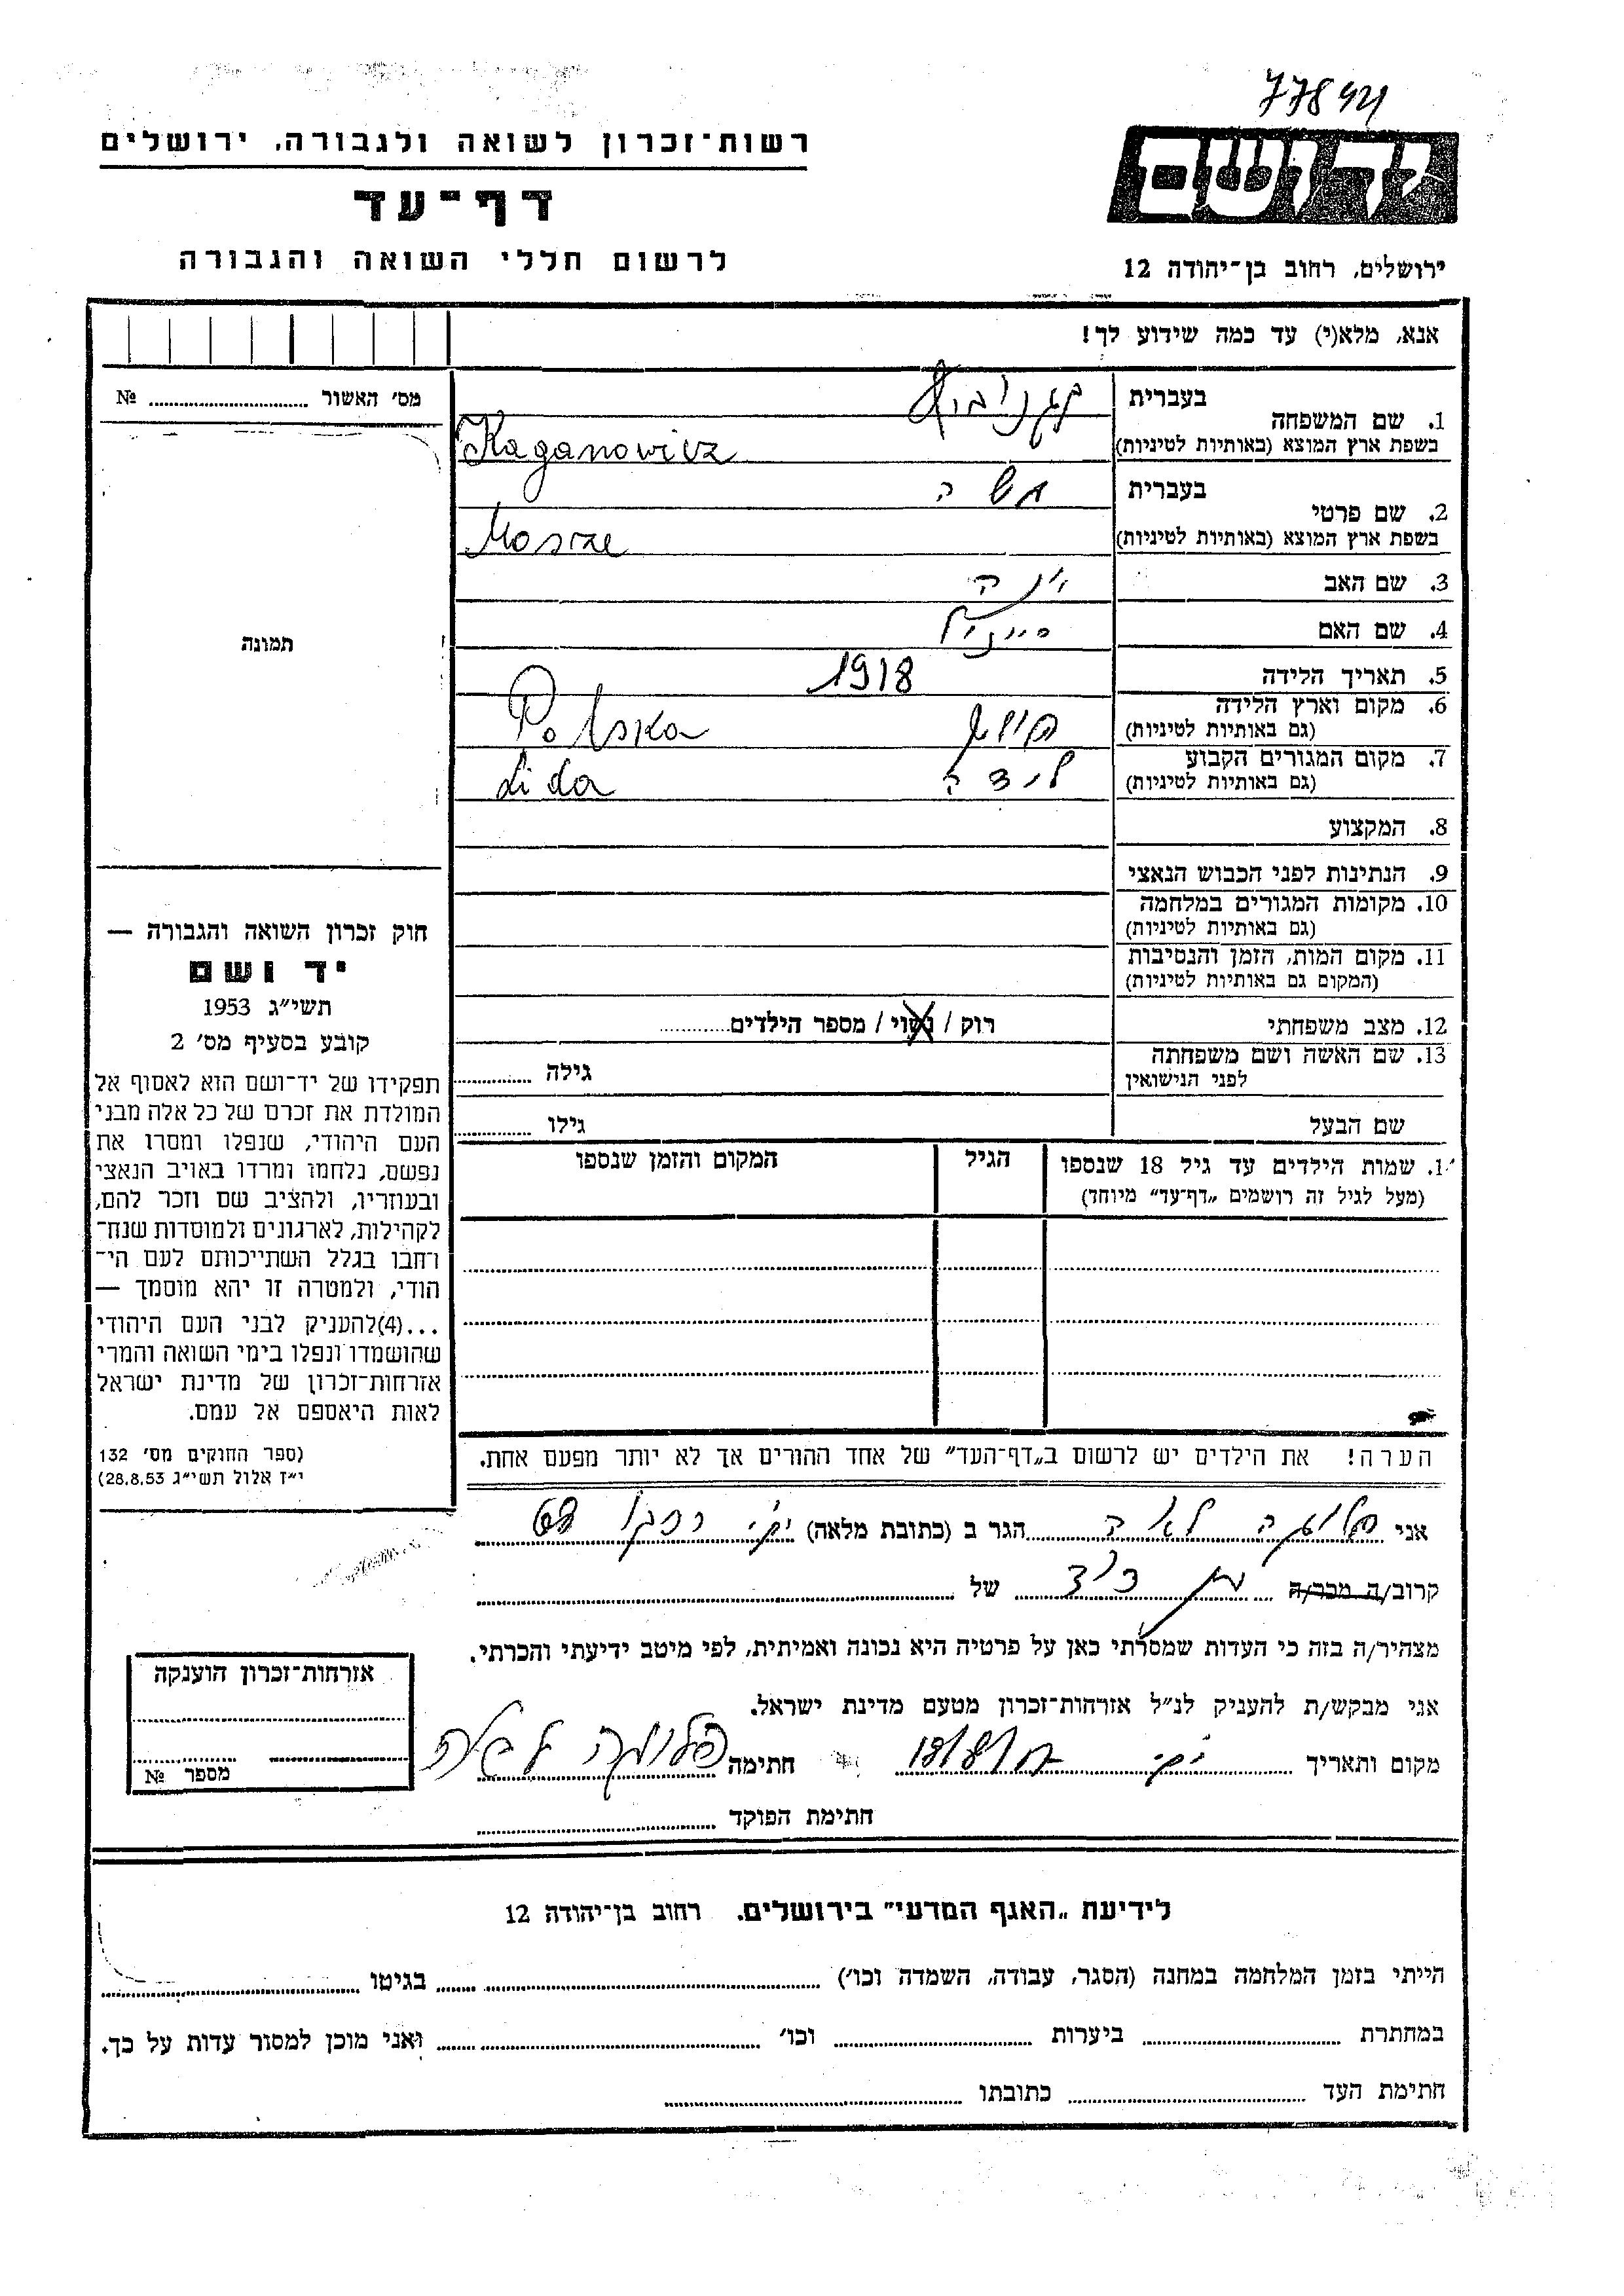 77841
רשות־זכרון לשואה ולגבורה, ירושלים
ידושם
דף־עד
לרשום חללי השואה והגבורה
ירושלים, רחוב בן־יהודה 12
אנא, מלא(י) עד כמה שידוע לך!
מס׳ האשור .......... №
1. שם המשפחה
בעברית
בשפת ארץ המוצא (באותיות לטיניות) Kaganowicz
2. שם פרטי
בעברית משה
בשפת ארץ המוצא (באותיות לטיניות) Mosze
3. שם האב
4. שם האם
5. תאריך הלידה 1918
6. מקום וארץ הלידה
(גם באותיות לטיניות) Polska
7. מקום המגורים הקבוע לידה
(גם באותיות לטיניות) Lida
8. המקצוע
9. הנתינות לפני הכבוש הנאצי
10. מקומות המגורים במלחמה
(גם באותיות לטיניות)
11. מקום המות, הזמן והנסיבות
(המקום גם באותיות לטיניות)
12. מצב משפחתי רוק / נשוי / מספר הילדים..........
13. שם האשה ושם משפחתה
לפני הנישואין גילה ..........
שם הבעל גילו ..........
1. שמות הילדים עד גיל 18 שנספו הגיל המקום והזמן שנספו
(מעל לגיל זה רושמים „דף־עד״ מיוחד)
הערה! את הילדים יש לרשום ב„דף־העד״ של אחד ההורים אך לא יותר מפעם אחת.
תמונה
חוק זכרון השואה והגבורה —
יד ושם
תשי״ג 1953
קובע בסעיף מס׳ 2
תפקידו של יד־ושם הוא לאסוף אל
המולדת את זכרם של כל אלה מבני
העם היהודי, שנפלו ומסרו את
נפשם, נלחמו ומרדו באויב הנאצי
ובעוזריו, ולהציב שם וזכר להם,
לקהילות, לארגונים ולמוסדות שנח־
רחבו בגלל השתייכותם לעם הי־
הודי, ולמטרה זו יהא מוסמך —
...(4)להעניק לבני העם היהודי
שהושמדו ונפלו בימי השואה והמרי
אזרחות־זכרון של מדינת ישראל
לאות היאספם אל עמם.
(ספר החוקים מס׳ 132
י״ז אלול תשי״ג 28.8.53)
אני לאה הגר ב (כתובת מלאה) 68
קרוב/ה מכר/ה בן דוד של ..........
מצהיר/ה בזה כי העדות שמסרתי כאן על פרטיה היא נכונה ואמיתית, לפי מיטב ידיעתי והכרתי.
אני מבקש/ת להעניק לנ״ל אזרחות־זכרון מטעם מדינת ישראל.
מקום ותאריך חתימה
חתימת הפוקד ..........
אזרחות־זכרון הוענקה
מספר №
לידיעת „האגף המדעי״ בירושלים. רחוב בן־יהודה 12
הייתי בזמן המלחמה במחנה (הסגר, עבודה, השמדה וכו׳) .......... בגיטו ..........
במחתרת .......... ביערות .......... וכו׳ .......... ואני מוכן למסור עדות על כך.
חתימת העד .......... כתובתו ..........